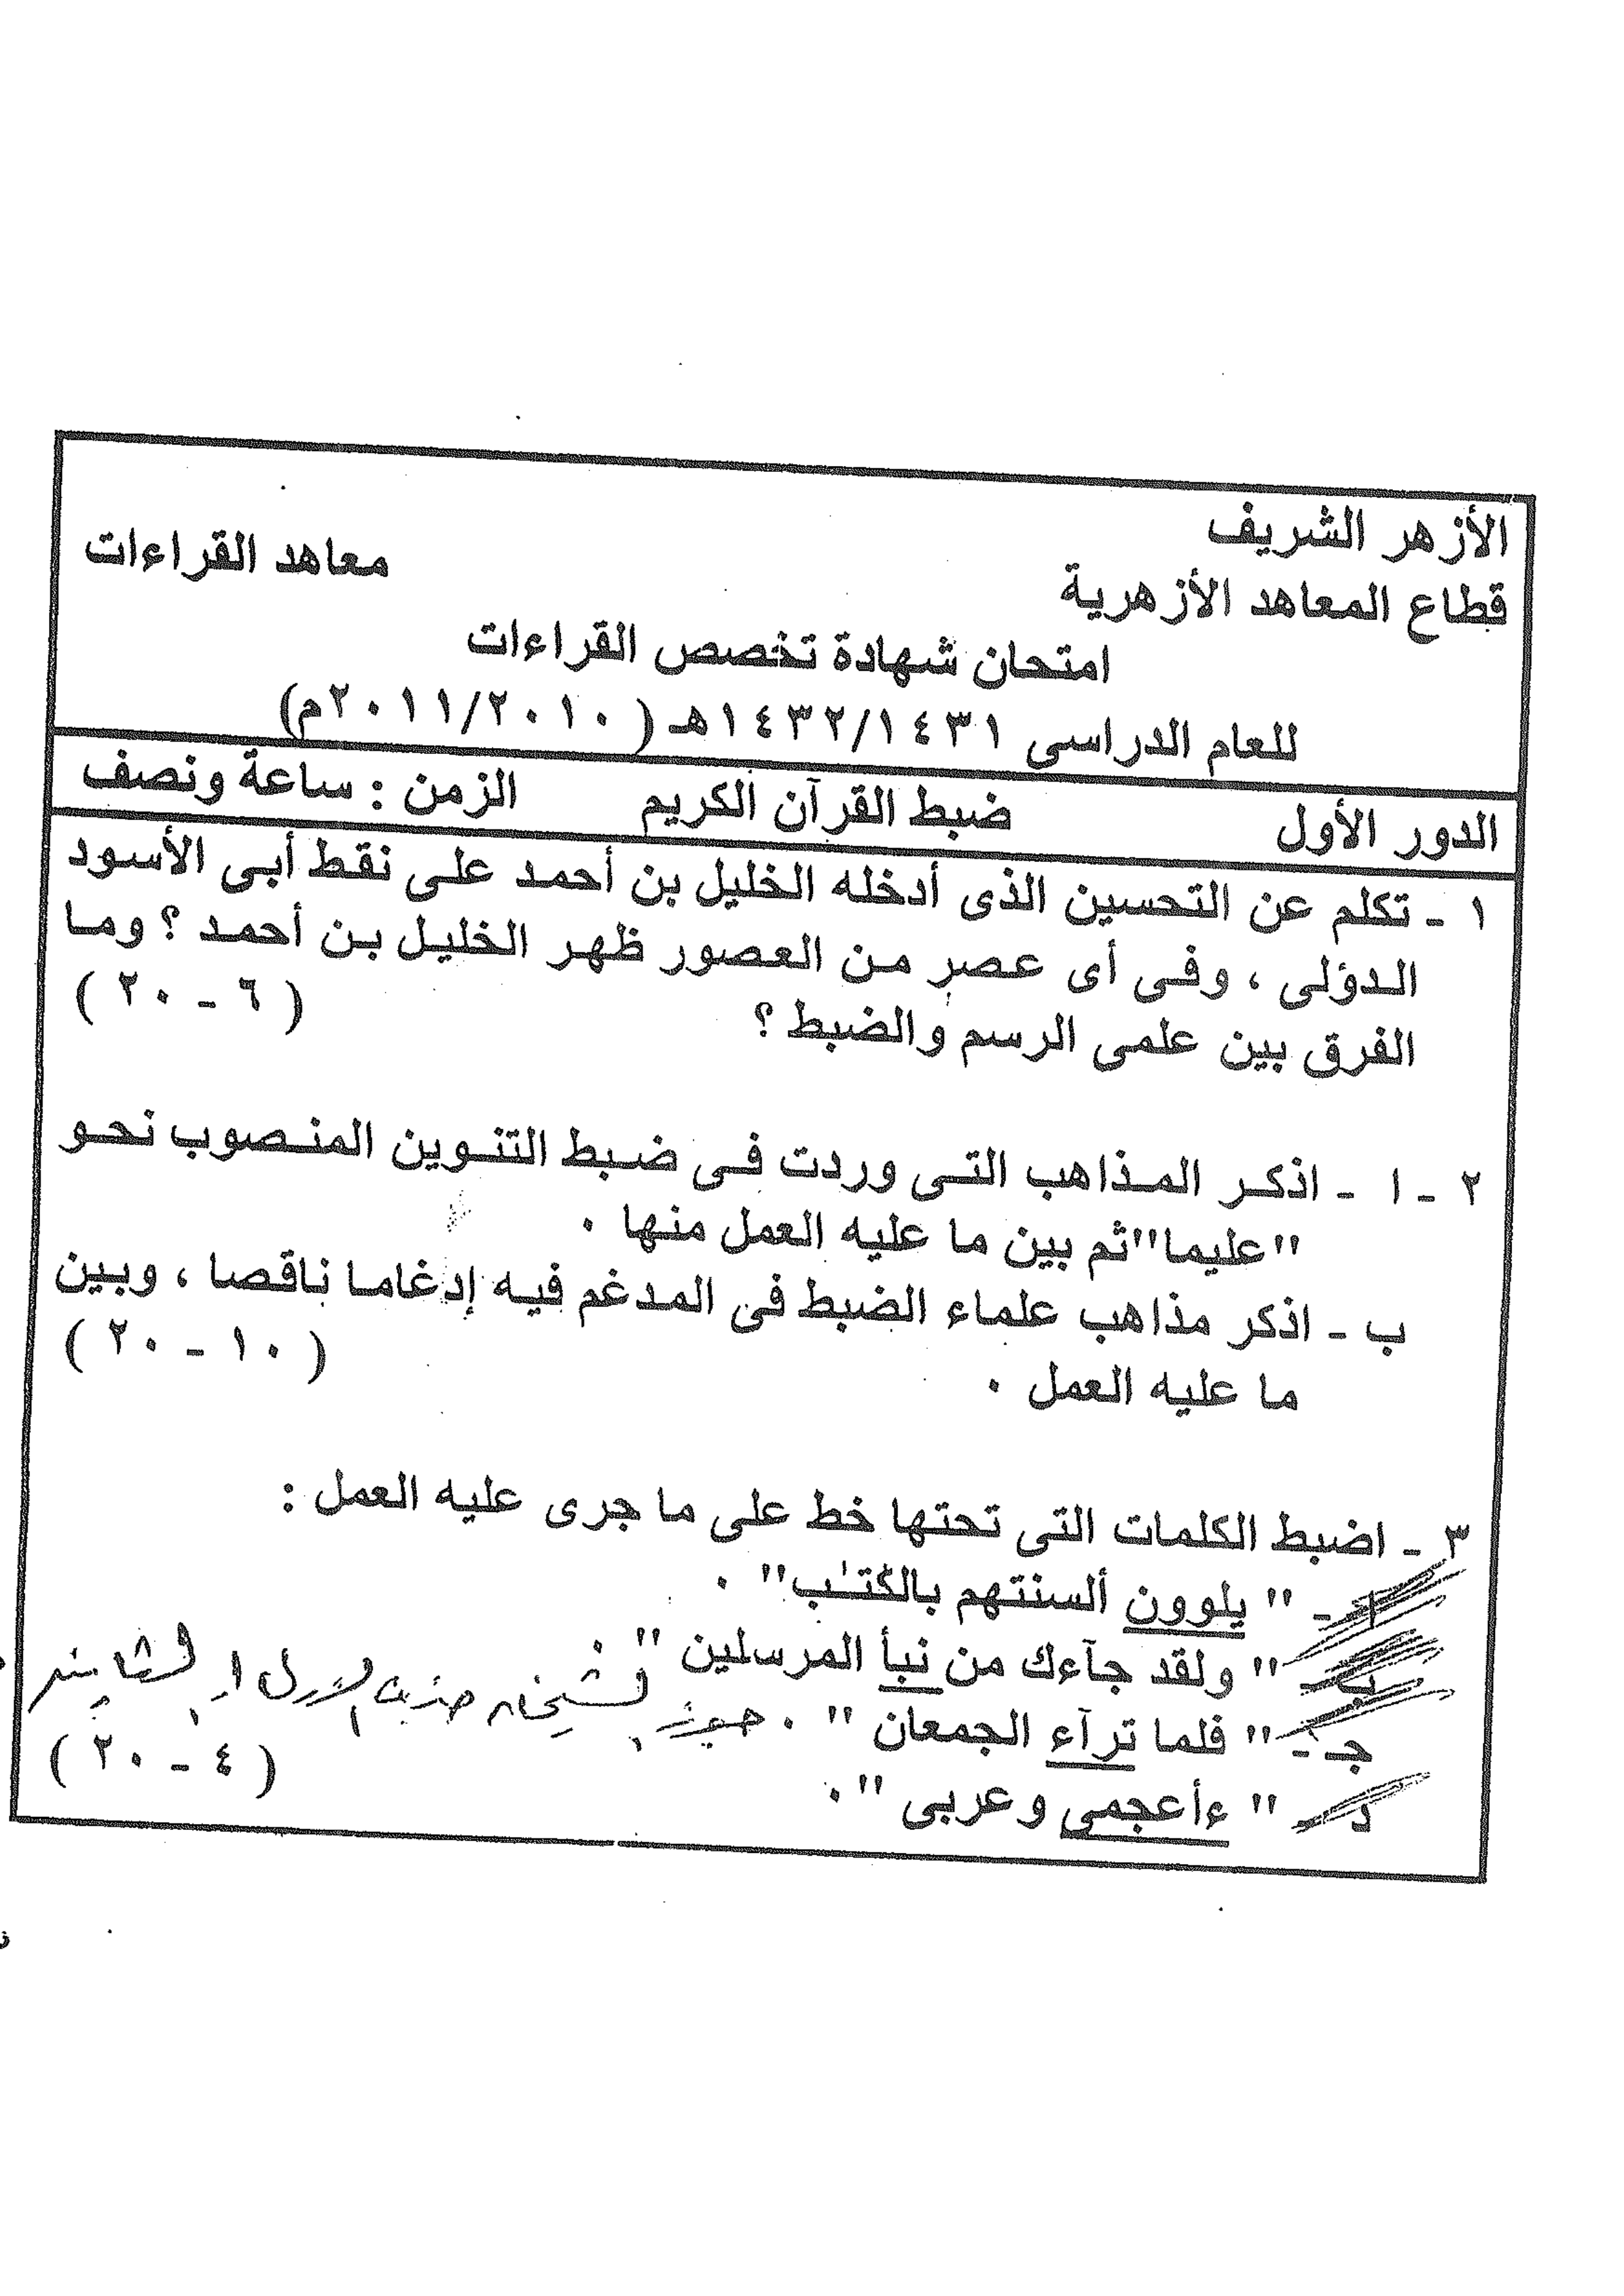 الأزهر الشريف
معاهد القراءات
قطاع المعاهد الأزهرية
امتحان شهادة تخصص القراءات
للعام الدراسى ١٤٣٢/١٤٣١هـ ( ٢٠١١/٢٠١٠م)
الدور الأول ضبط القرآن الكريم الزمن : ساعة ونصف
١ - تكلم عن التحسين الذى أدخله الخليل بن أحمد على نقط أبى الأسود
الدؤلى ، وفى أى عصر من العصور ظهر الخليل بن أحمد ؟ وما
الفرق بين علمى الرسم والضبط ؟ ( ٦ - ٢٠ )
٢ - ا - اذكر المذاهب التى وردت فى ضبط التنوين المنصوب نحو
"عليما"ثم بين ما عليه العمل منها .
ب - اذكر مذاهب علماء الضبط فى المدغم فيه إدغاما ناقصا ، وبين
ما عليه العمل . ( ١٠ - ٢٠ )
٣ - اضبط الكلمات التى تحتها خط على ما جرى عليه العمل :
ا - " يلوون ألسنتهم بالكتٰب" .
ب - " ولقد جآءك من نبأ المرسلين " .
جـ - " فلما ترآء الجمعان " .
د - " ءأعجمى وعربى ". ( ٤ - ٢٠ )